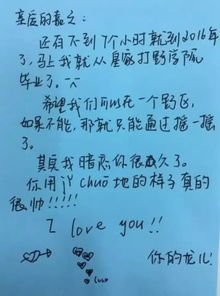 亲爱的嘉之:
还有不到7个小时就到2016年
了,马上我就从皇家打野学院
毕业了。^^
希望我们可以在一个野区,
如果不能,那就只能通过摇一摇
了。
其实我暗恋你很久了。
你用丫chuō地的样子真的
很帅!!!!!
I love you!!
你的龙儿!